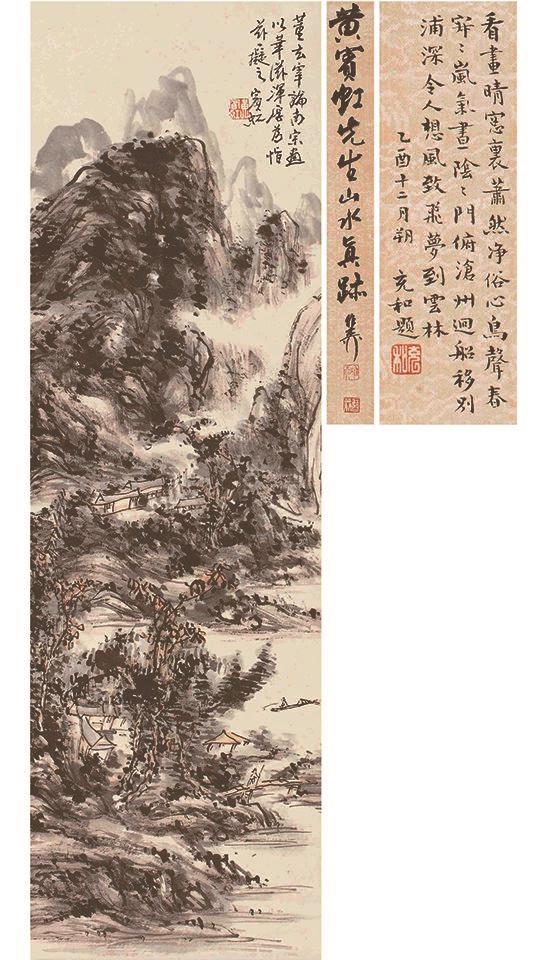 看畫晴窓裏蕭然净俗心鳥聲春
寂〻嵐氣晝陰〻門俯滄州迴船移别
浦深令人想風致飛夢到雲林
乙酉十二月朔 充和題
充和
黄賓虹先生山水真跡
董玄宰論南宗畫
以華滋渾厚為恉
茲擬之 賓虹